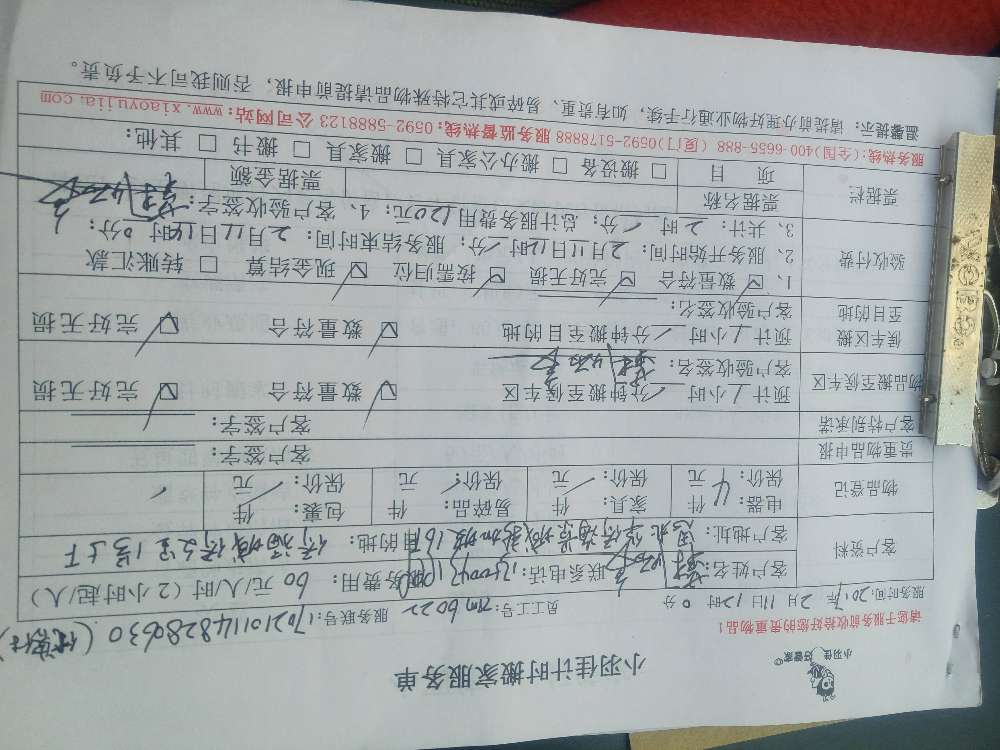 小羽佳 好管家
小羽佳计时搬家服务单
请您于服务前收拾好您的贵重物品！
服务时间：2017年2月11日12时0分 员工工号：zm6022 服务联号：1702101148289630
客户资料 客户姓名： 联系电话： 服务费用：60元/人/时（2小时/人起）
客户地址： 目的地：
物品登记 电器：4件 家具：件 易碎品：件 包裹：件
保价：元 保价：元 保价：元 保价：
贵重物品申报 客户签字：
客户特别承诺 客户签字：
物品搬至候车区 预计1小时 分钟搬至候车区 ☑ 数量符合 ☑ 完好无损
客户验收签名：
候车区搬至目的地 预计1小时 分钟搬至目的地 ☑ 数量符合 ☑ 完好无损
客户验收签名：
验收付费 1、☑ 数量符合 ☑ 完好无损 ☑ 按需归位 ☑ 现金结算 □ 转账汇款
2、服务开始时间：2月11日12时 分； 服务结束时间：2月11日14时0分；
3、共计：2时 分； 总计服务费用120元； 4、客户验收签字：
票据栏 票据名称 票据金额
项 目 □ 搬设备 □ 搬办公家具 □ 搬家具 □ 搬书 □ 其他：
服务热线：（全国）400-6655-888（厦门）0592-5178888 服务监督热线：0592-5888123 公司网站：www.xiaoyujia.com
温馨提示：请提前办理好物业通行手续，如有贵重、易碎或其它特殊物品请提前申报，否则我司不予负责。